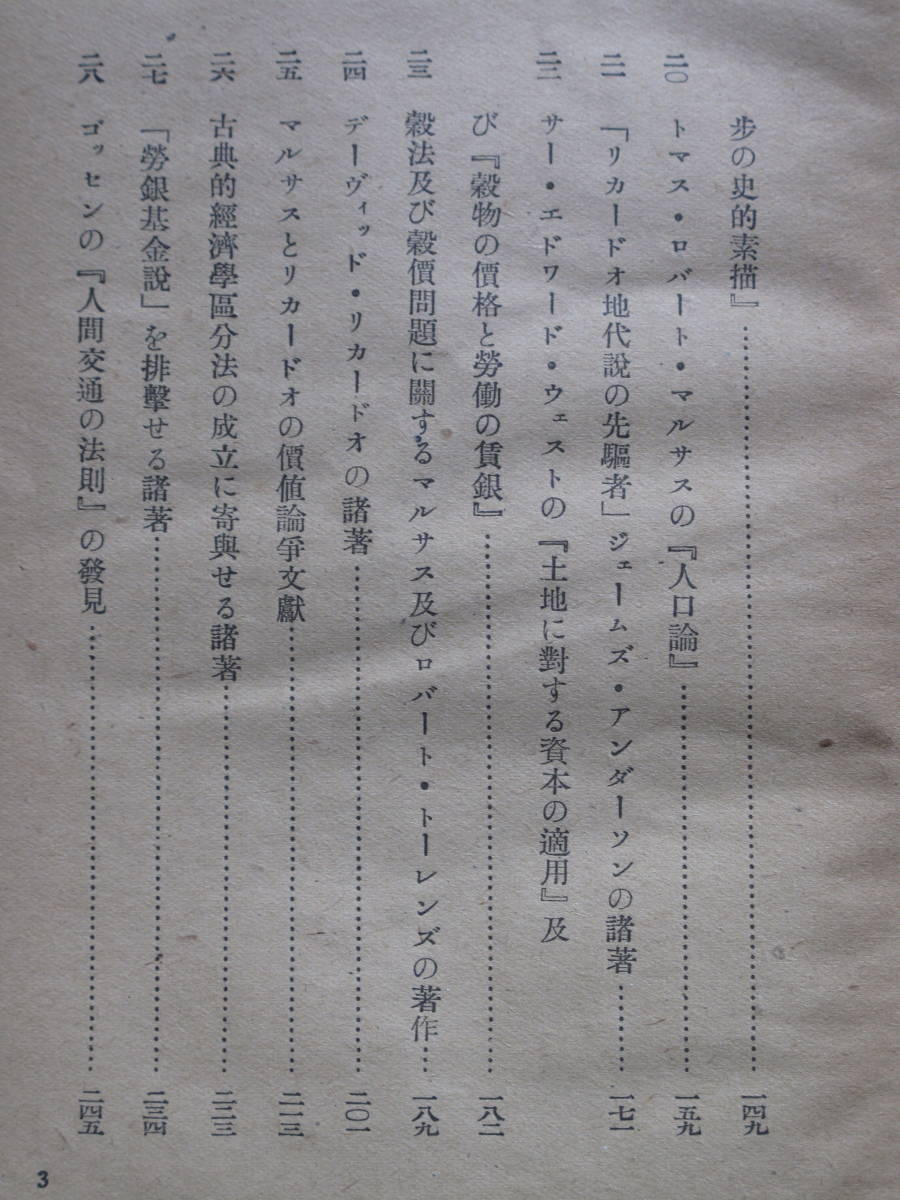 步の史的素描』……一四九
二〇 トマス・ロバート・マルサスの『人口論』……一五九
二一 「リカードオ地代說の先驅者」ジェームズ・アンダーソンの諸著……一七一
二二 サー・エドワード・ウェストの『土地に對する資本の適用』及
び『穀物の價格と勞働の賃銀』……一八二
二三 穀法及び穀價問題に關するマルサス及びロバート・トーレンズの著作……一八九
二四 デーヴィッド・リカードオの諸著……二〇一
二五 マルサスとリカードオの價値論爭文獻……二一三
二六 古典的經濟學區分法の成立に寄與せる諸著……二二三
二七 「勞銀基金說」を排擊せる諸著……二三四
二八 ゴッセンの『人間交通の法則』の發見……二四五
3